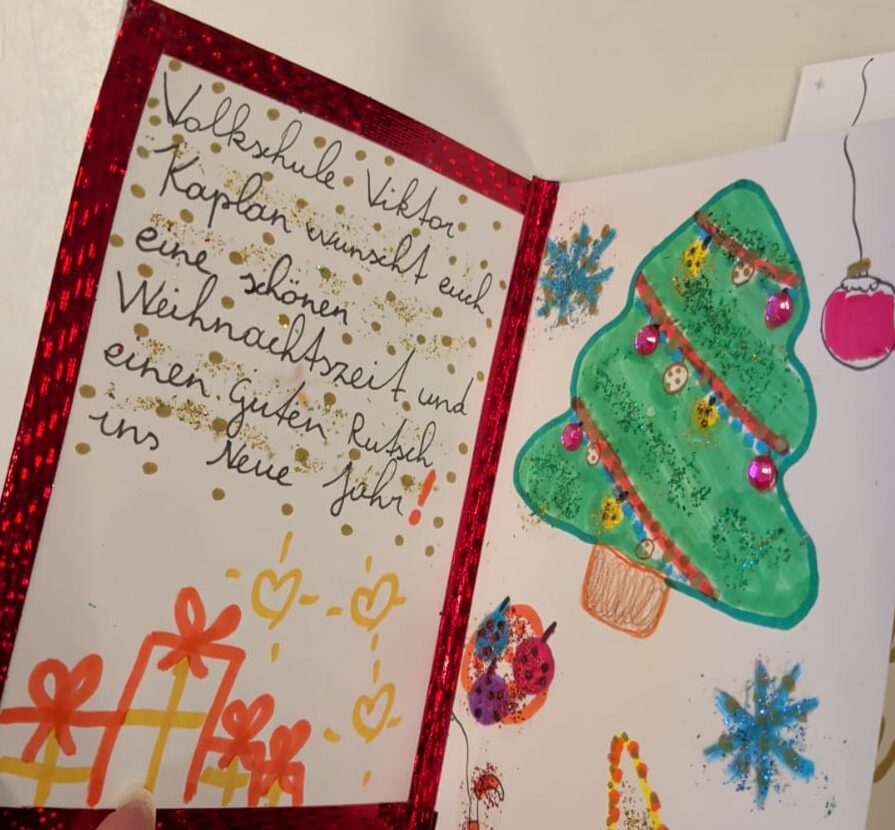 Volkschule Viktor
Kaplan wünscht euch
eine schönen
Weihnachtszeit und
einen guten Rutsch
ins Neue Jahr!